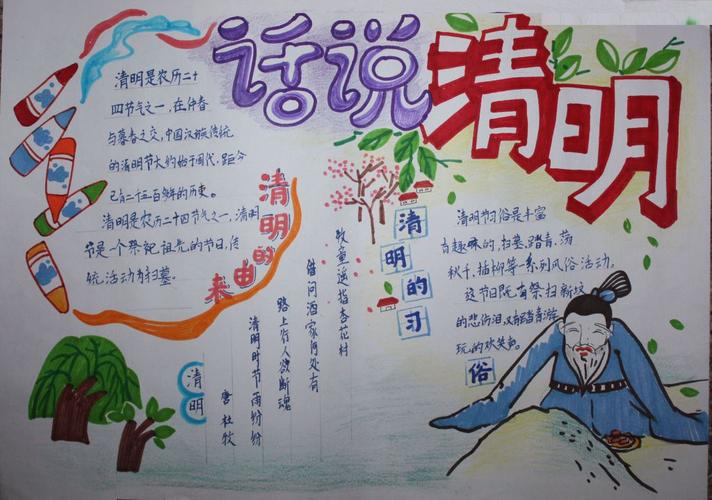 话说清明
清明是农历二十
四节气之一，在仲春
与暮春之交，中国汉族传统
的清明节大约始于周代，距今
已有二千五百多年的历史。
清明是农历二十四节气之一，清明
节是一个祭祀祖先的节日，传
统活动为扫墓。
清明的由来
清明
唐 杜牧
清明时节雨纷纷
路上行人欲断魂
借问酒家何处有
牧童遥指杏花村
清明的习俗
清明节习俗是丰富
有趣味的，扫墓、踏青、荡
秋千、插柳等一系列风俗活动。
这节日既有祭扫新坟
的悲伤泪，又有踏青游
玩的欢笑声。